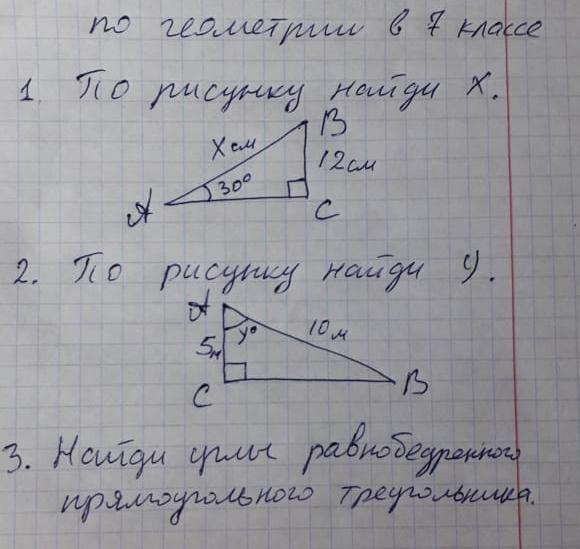 по геометрии в 7 классе
1. По рисунку найди X.
B
X см
12см
30°
A
C
2. По рисунку найди y.
A
y°
10 м
5м
C
B
3. Найди углы равнобедренного
прямоугольного треугольника.